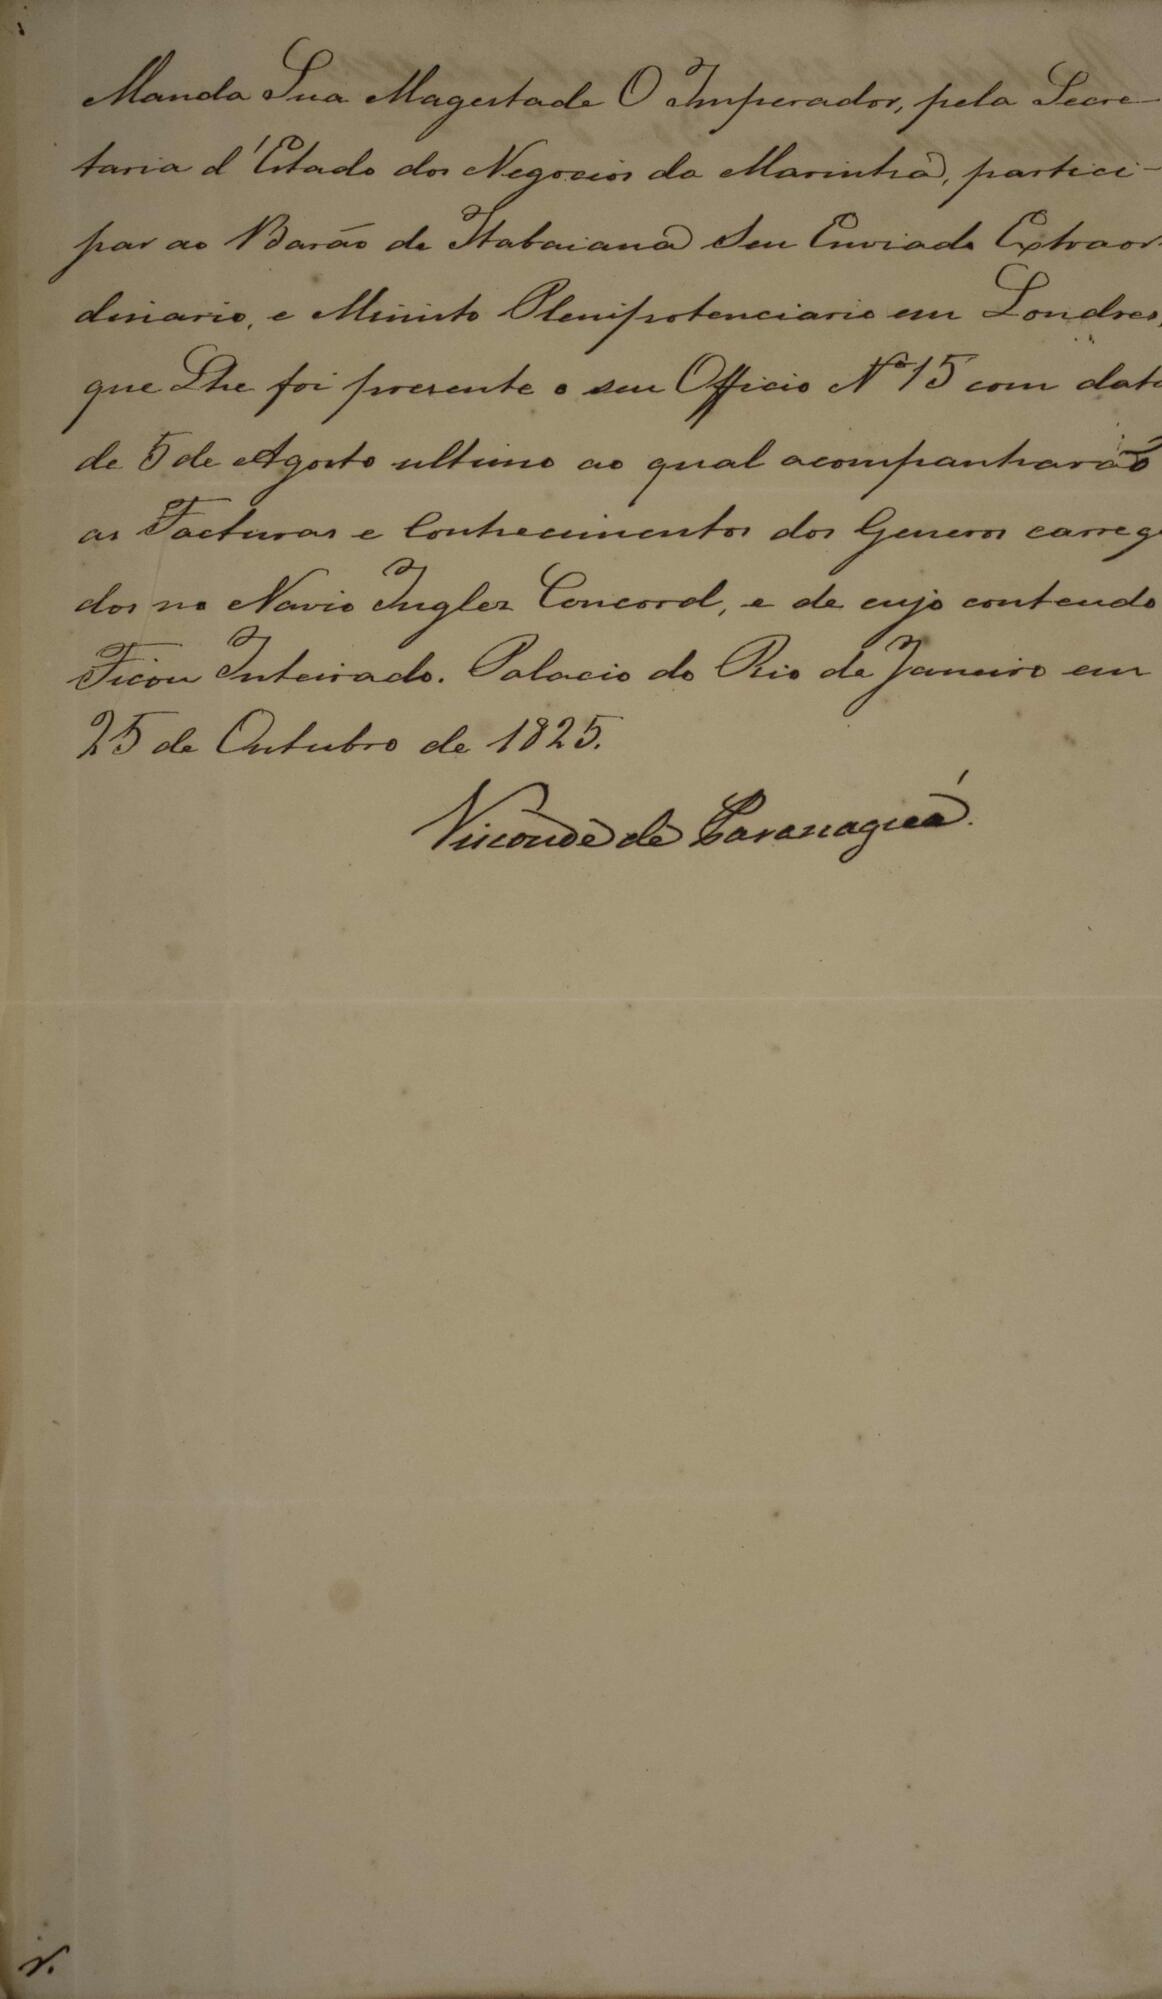 Manda Sua Magestade O Imperador, pela Secre-
taria d'Estado dos Negocios da Marinha, partici-
par ao Barão de Itabaiana Seu Enviado Extraor-
dinario, e Ministo Plenipotenciario em Londres,
que Lhe foi presente o seu Officio Nº 15 com data
de 5 de Agosto ultimo ao qual acompanharão
as Facturas e Conhecimentos dos Generos carrega
dos no Navio Inglez Concord, e de cujo conteudo
Ficou Inteirado. Palacio do Rio de Janeiro em
25 de Outubro de 1825.
Visconde de Paranaguá.